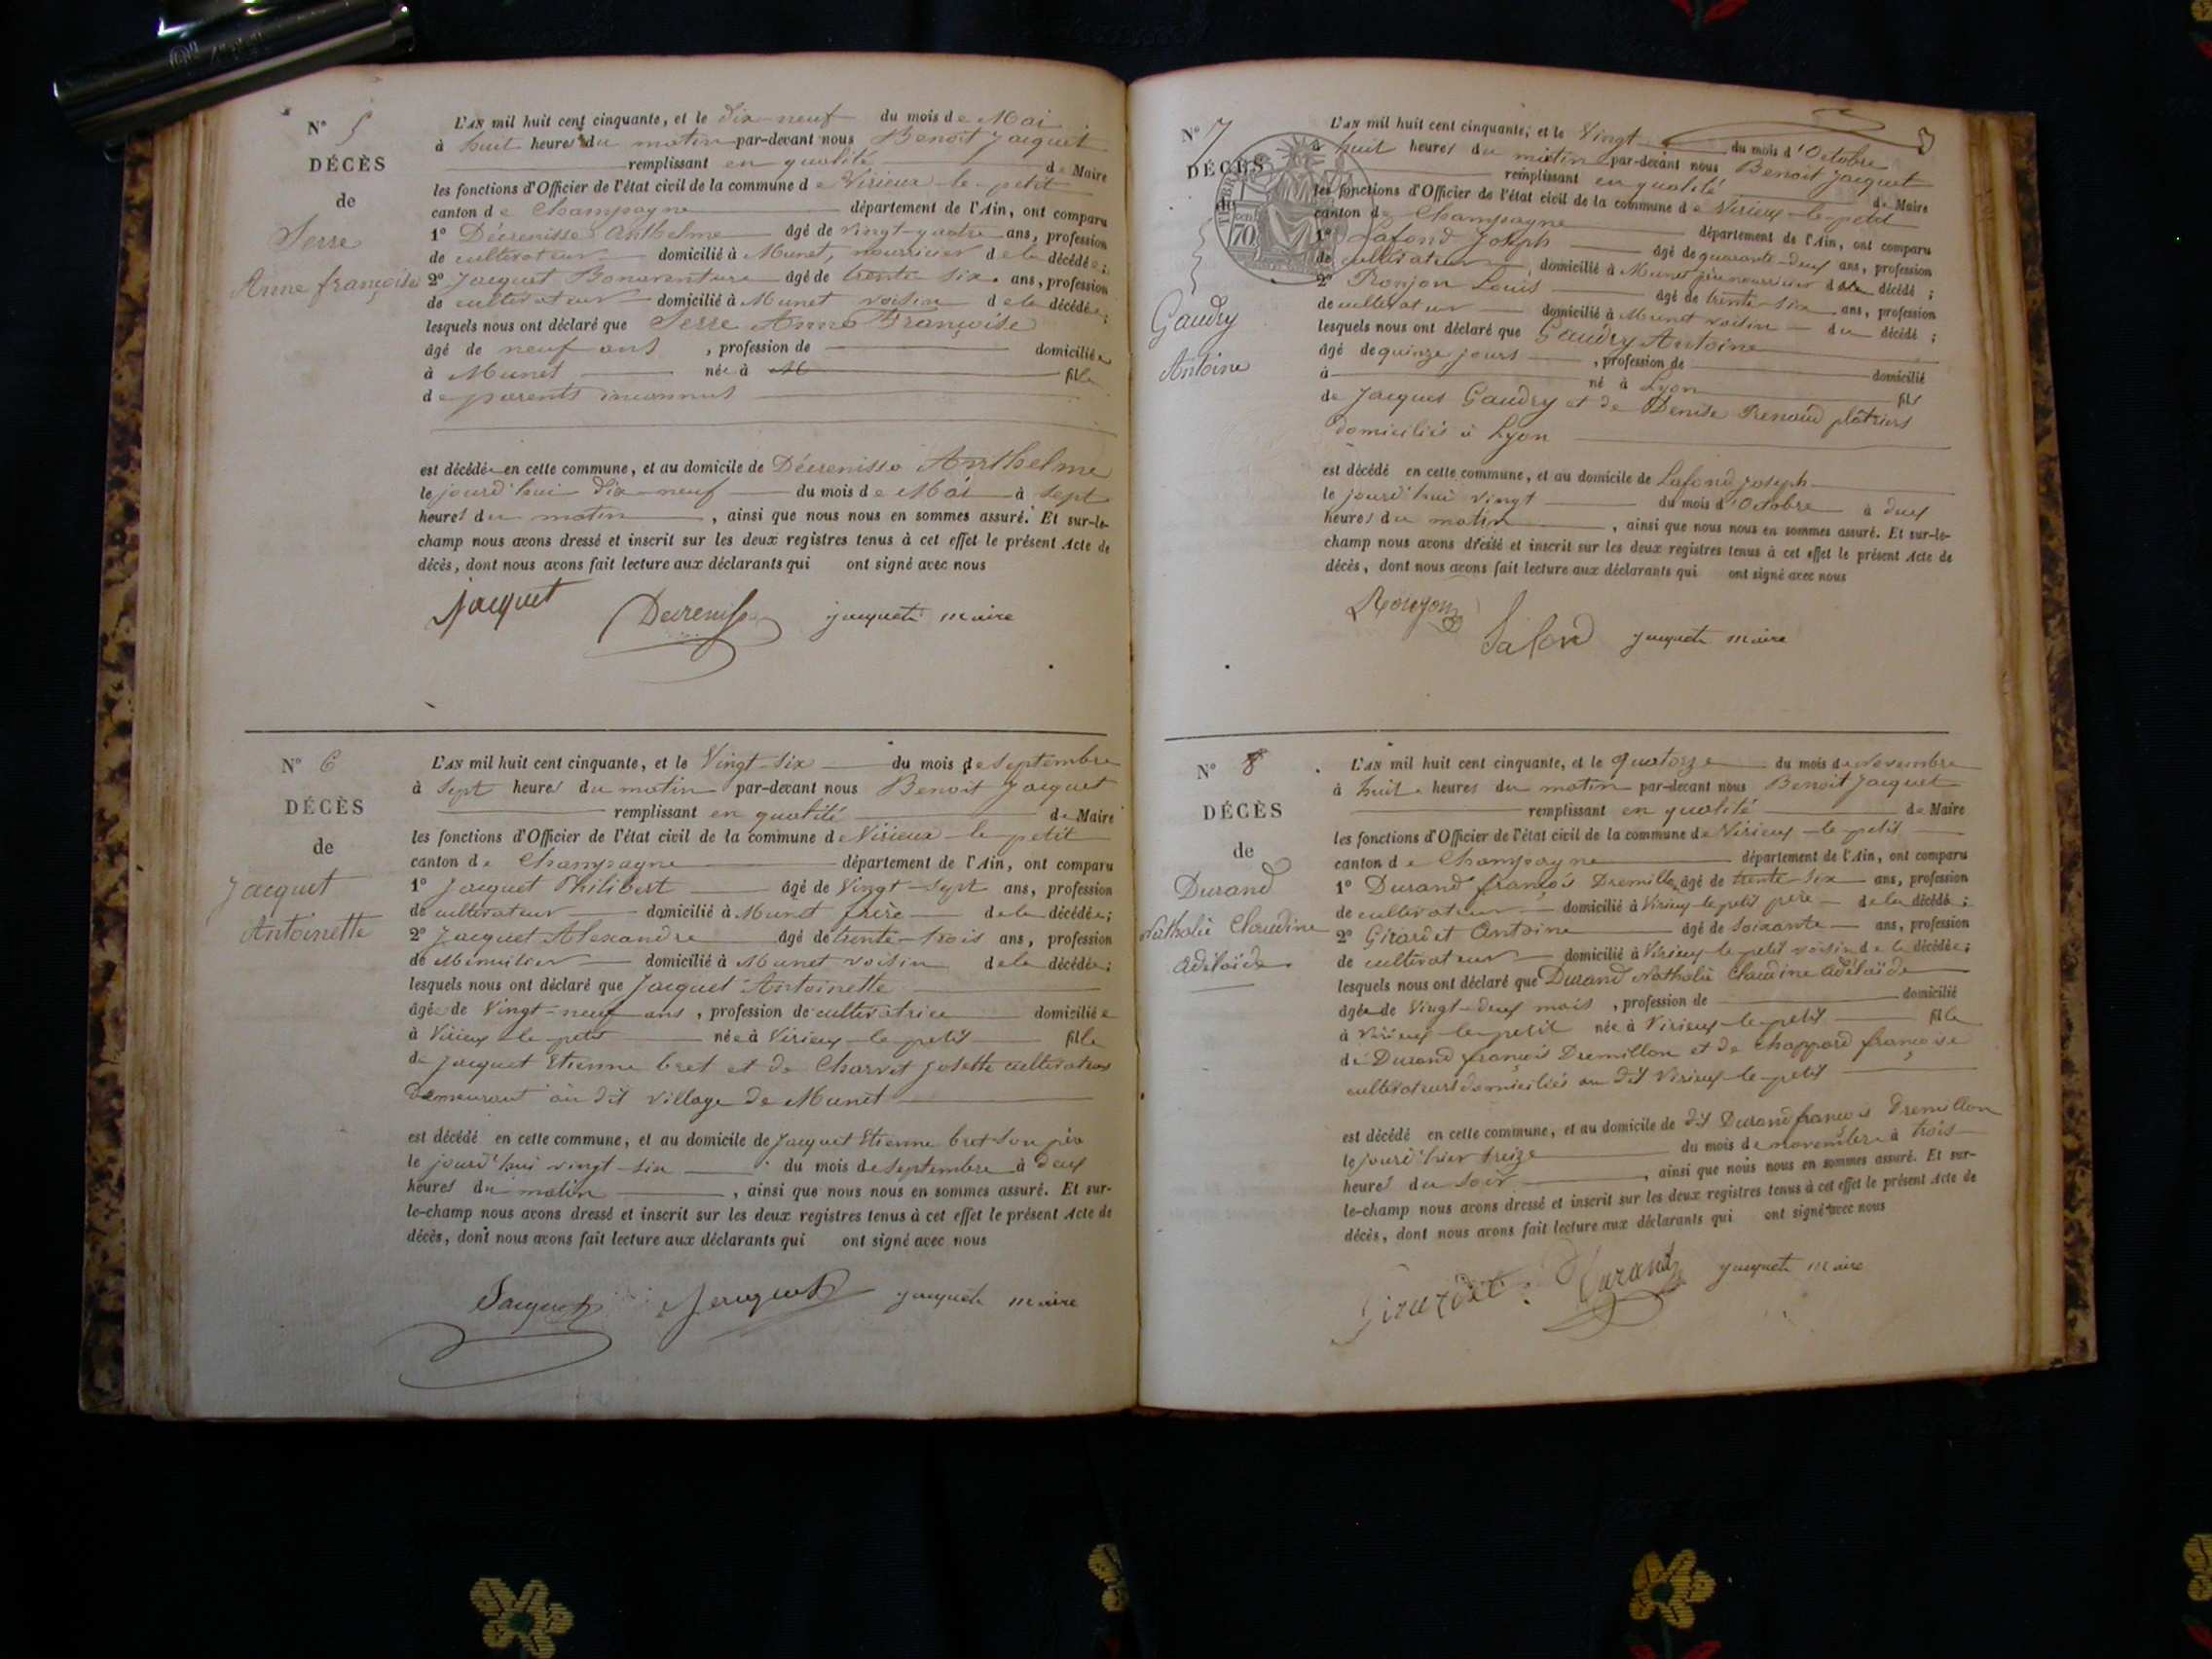 N° 5
DÉCÈS
de
Serre
Anne françoise
L'AN mil huit cent cinquante, et le dix-neuf du mois de Mai
à huit heures du matin par-devant nous Benoit Jacquet
remplissant en qualité de Maire
les fonctions d'Officier de l'état civil de la commune de Virieux-le-petit
canton de Champagne département de l'Ain, ont comparu
1° Décrenisse Anthelme âgé de vingt-quatre ans, profession
de cultivateur domicilié à Munet, nourricier de la décédée;
2° Jacquet Bonaventure âgé de trente six ans, profession
de cultivateur domicilié à Munet voisin de la décédée;
lesquels nous ont déclaré que Serre Anne Françoise
âgé de neuf ans, profession de domiciliée
à Munet née à fille
de parents inconnus
est décédée en cette commune, et au domicile de Décrenisse Anthelme
le jourd'hui dix-neuf du mois de Mai à sept
heures du matin, ainsi que nous nous en sommes assuré. Et sur-le-
champ nous avons dressé et inscrit sur les deux registres tenus à cet effet le présent Acte de
décès, dont nous avons fait lecture aux déclarants qui ont signé avec nous
Jacquet Décrenisse jacquet maire
N° 6
DÉCÈS
de
Jacquet
Antoinette
L'AN mil huit cent cinquante, et le Vingt-six du mois de Septembre
à Sept heures du matin par-devant nous Benoit Jacquet
remplissant en qualité de Maire
les fonctions d'Officier de l'état civil de la commune de Virieux-le-petit
canton de Champagne département de l'Ain, ont comparu
1° Jacquet Philibert âgé de Vingt-Sept ans, profession
de cultivateur domicilié à Munet frère de la décédée;
2° Jacquet Alexandre âgé de trente-trois ans, profession
de Menuisier domicilié à Munet voisin de la décédée;
lesquels nous ont déclaré que Jacquet Antoinette
âgée de Vingt-neuf ans, profession de cultivatrice domiciliée
à Virieux-le-petit née à Virieux-le-petit fille
de Jacquet Etienne bret et de Charvet Josette cultivateurs
demeurant au dit village de Munet
est décédé en cette commune, et au domicile de Jacquet Etienne bret son père
le jourd'hui vingt-six du mois de Septembre à deux
heures du matin, ainsi que nous nous en sommes assuré. Et sur-
le-champ nous avons dressé et inscrit sur les deux registres tenus à cet effet le présent Acte de
décès, dont nous avons fait lecture aux déclarants qui ont signé avec nous
Jacquet Jacquet jacquet maire
3
N° 7
DÉCÈS
du
Gaudry
Antoine
L'AN mil huit cent cinquante, et le Vingt du mois d'Octobre
à huit heures du matin par-devant nous Benoit Jacquet
remplissant en qualité de Maire
les fonctions d'Officier de l'état civil de la commune de Virieux-le-petit
canton de Champagne département de l'Ain, ont comparu
1° Lafond Joseph âgé de quarante-deux ans, profession
de cultivateur, domicilié à Munet père nourricier du décédé;
2° Ronjon Louis âgé de trente-six ans, profession
de cultivateur domicilié à Munet voisin du décédé;
lesquels nous ont déclaré que Gaudry Antoine
âgé de quinze jours, profession de
à né à Lyon domicilié fils
de Jacques Gaudry et de Denise Renaud plâtriers
domiciliés à Lyon
est décédé en cette commune, et au domicile de Lafond Joseph
le jourd'hui vingt du mois d'Octobre à deux
heures du matin, ainsi que nous nous en sommes assuré. Et sur-le-
champ nous avons dressé et inscrit sur les deux registres tenus à cet effet le présent Acte de
décès, dont nous avons fait lecture aux déclarants qui ont signé avec nous
Ronjon Lafond jacquet maire
N° 8
DÉCÈS
de
Durand
Nathalie Claudine
Adélaïde
L'AN mil huit cent cinquante, et le quatorze du mois de Novembre
à huit heures du matin par-devant nous Benoit Jacquet
remplissant en qualité de Maire
les fonctions d'Officier de l'état civil de la commune de Virieux-le-petit
canton de Champagne département de l'Ain, ont comparu
1° Durand françois Dremillon âgé de trente-six ans, profession
de cultivateur domicilié à Virieux-le-petit père de la décédé;
2° Girardet Antoine âgé de soixante ans, profession
de cultivateur domicilié à Virieux-le-petit voisin de la décédée;
lesquels nous ont déclaré que Durand Nathalie Claudine Adélaïde
âgée de Vingt-deux mois, profession de domicilié
à Virieux-le-petit née à Virieux-le-petit fille
de Durand françois Dremillon et de Chappard françoise
cultivateurs domiciliés au dit Virieux-le-petit
est décédé en cette commune, et au domicile de dit Durand françois Dremillon
le jourd'hier treize du mois de novembre à trois
heures du soir, ainsi que nous nous en sommes assuré. Et sur-
le-champ nous avons dressé et inscrit sur les deux registres tenus à cet effet le présent Acte de
décès, dont nous avons fait lecture aux déclarants qui ont signé avec nous
Girardet Durand jacquet maire